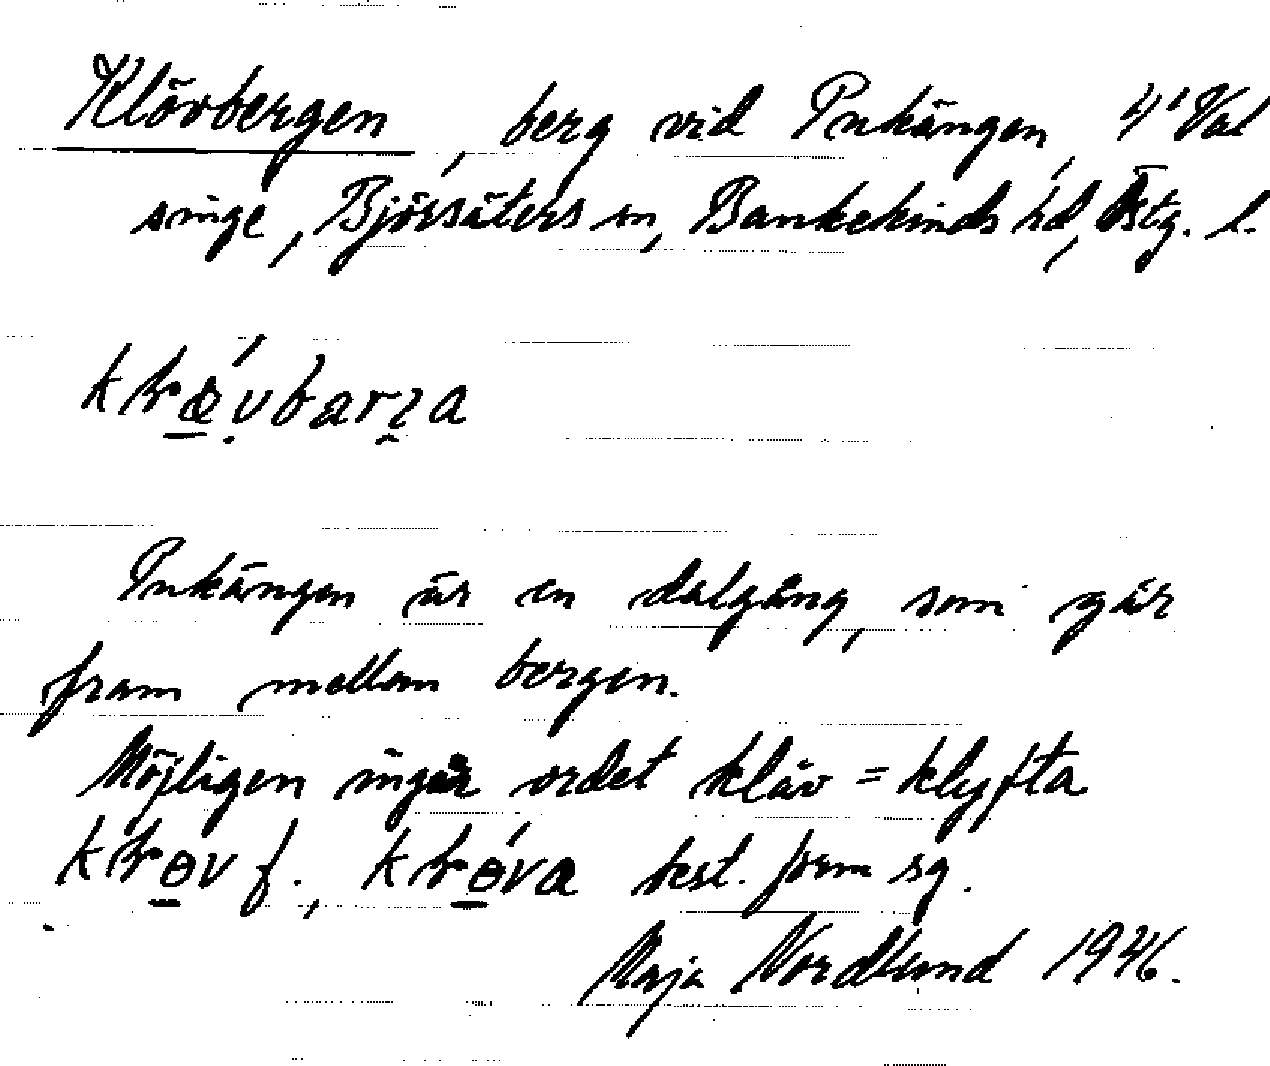 Klövbergen, berg vid Pukängen, 4' Val
singe, Björsäters sn, Bankekinds hd, Östg. l.
Pukängen är en dalgång, som går
fram mellan bergen.
Möjligen ingår ordet kläv = klyfta
f., best. form sg.
Maja Nordlund 1946.